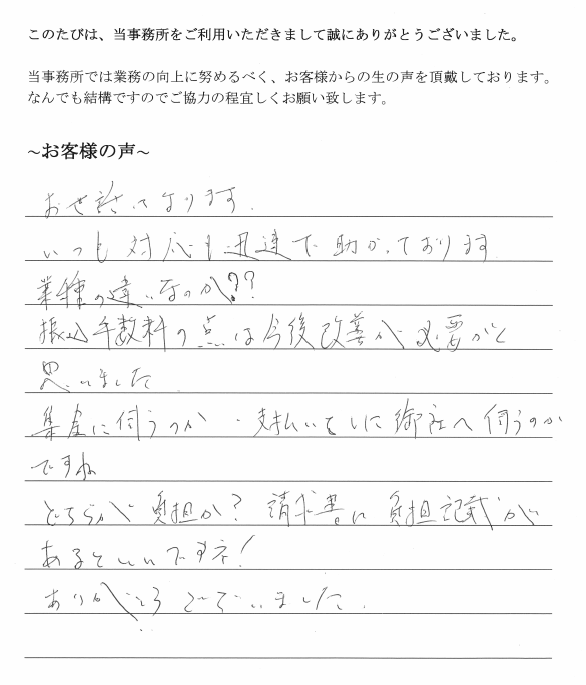 このたびは、当事務所をご利用いただきまして誠にありがとうございました。
当事務所では業務の向上に努めるべく、お客様からの生の声を頂戴しております。
なんでも結構ですのでご協力の程宜しくお願い致します。
~お客様の声~
お世話になります。
いつも対応も迅速で助かっております
業種の違いなのか??
振込手数料の点は今後改善が必要かと
思いました
集金に伺うのか・支払いをしに御社へ伺うのか
ですね
どちらが負担か?請求書に負担記載が
あるといいですネ!
ありがとうございました。